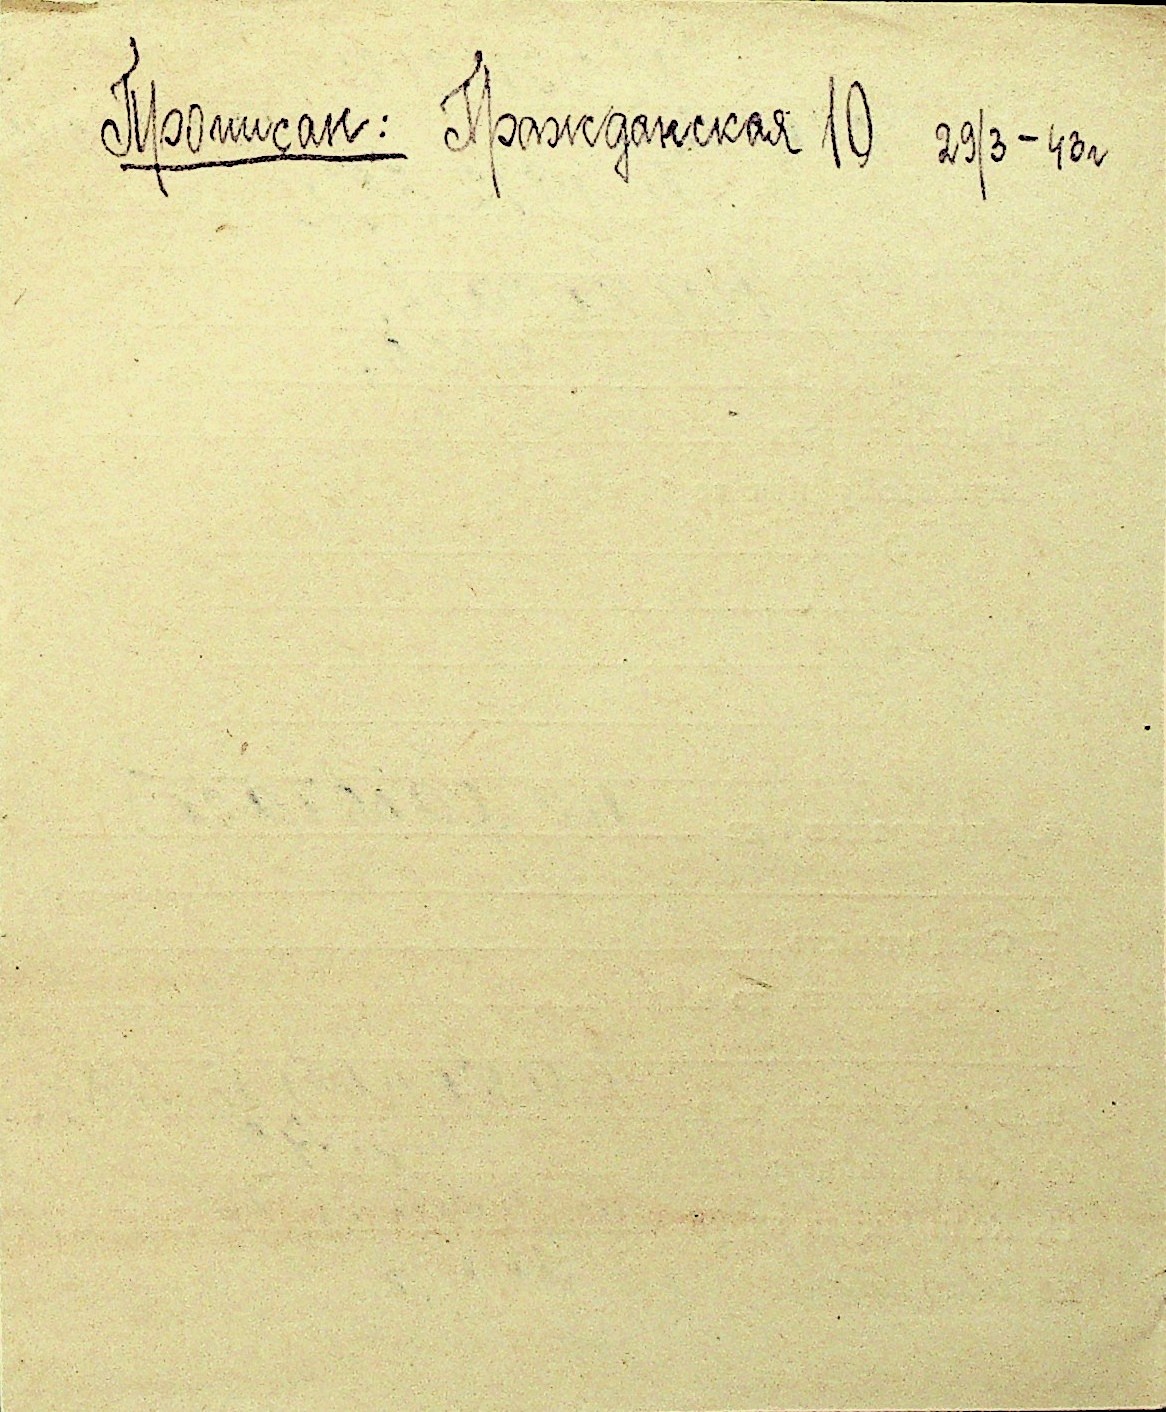 Прописан: Гражданская 10 29/3-43г